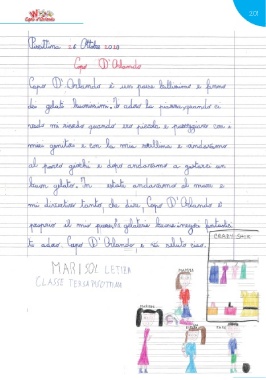 W
Capo d'Orlando
201
Piscittina 26 Ottobre 2020
Capo D'Orlando
Capo D'Orlando è un paese bellissimo e fanno
dei gelati buonissimi. Io adoro la piazza, quando ci
vado mi ricordo quando ero piccola e passeggiavo con i
miei genitori e con la mia sorellina e andavamo
al parco giochi e dopo andavamo a gustarci un
buon gelato. In estate andavamo al mare e
mi divertivo tanto, che dire, Capo D'Orlando è
proprio il mio paese,
ti adoro Capo D'Orlando e vi saluto ciao.
MARISOL LETIZIA
CLASSE TERZA PISCITTINA
CRAZY SALE